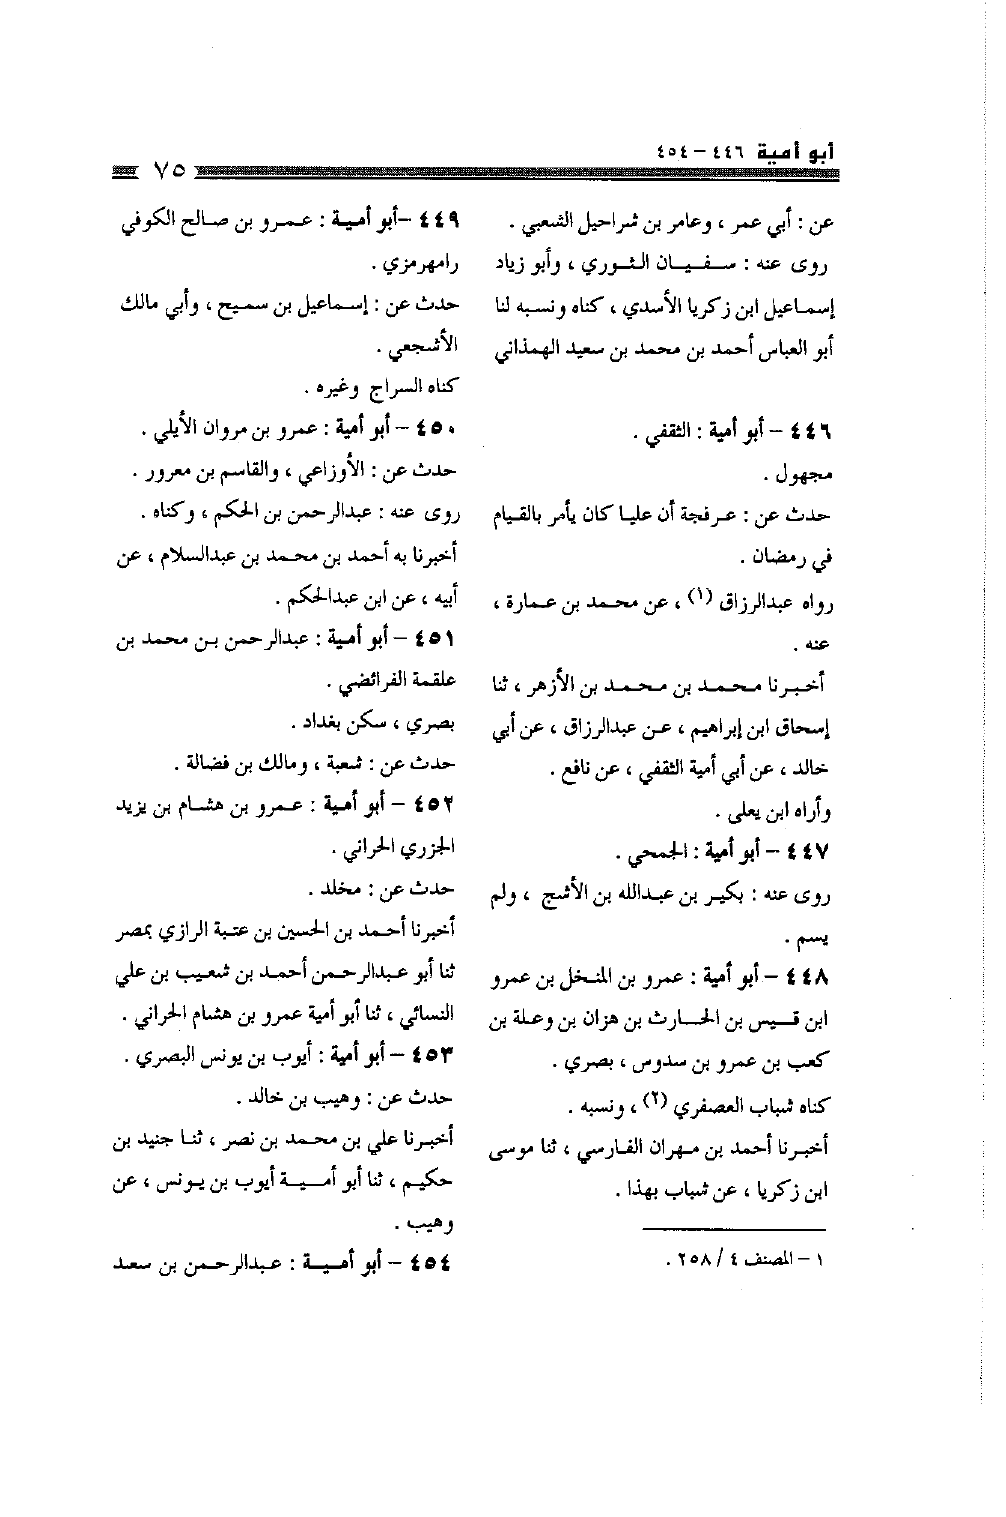 أبو أمية ٤٤٦ - ٤٥٤
٧٥
عن : أبي عمر ، وعامر بن شراحيل الشعبي .
روى عنه : سفيان الثوري ، وأبو زياد
إسماعيل ابن زكريا الأسدي ، كناه ونسبه لنا
أبو العباس أحمد بن محمد بن سعيد الهمذاني
٤٤٦ - أبو أمية : الثقفي .
مجهول .
حدث عن : عرفجة أن عليا كان يأمر بالقيام
في رمضان .
رواه عبدالرزاق (١) ، عن محمد بن عمارة ،
عنه .
أخبرنا محمد بن محمد بن الأزهر ، ثنا
إسحاق ابن إبراهيم ، عن عبدالرزاق ، عن أبي
خالد ، عن أبي أمية الثقفي ، عن نافع .
وأراه ابن يعلى .
٤٤٧ - أبو أمية : الجمحي .
روى عنه : بكير بن عبدالله بن الأشج ، ولم
يسم .
٤٤٨ - أبو أمية : عمرو بن المنخل بن عمرو
ابن قيس بن الحارث بن هزان بن وعلة بن
كعب بن عمرو بن سدوس ، بصري .
كناه شباب العصفري (٢) ، ونسبه .
أخبرنا أحمد بن مهران الفارسي ، ثنا موسى
ابن زكريا ، عن شباب بهذا .
١ - المصنف ٤ / ٢٥٨ .
٤٤٩ -أبو أمية : عمرو بن صالح الكوفي
رامهرمزي .
حدث عن : إسماعيل بن سميح ، وأبي مالك
الأشجعي .
كناه السراج وغيره .
٤٥٠ - أبو أمية : عمرو بن مروان الأيلي .
حدث عن : الأوزاعي ، والقاسم بن معرور .
روى عنه : عبدالرحمن بن الحكم ، وكناه .
أخبرنا به أحمد بن محمد بن عبدالسلام ، عن
أبيه ، عن ابن عبدالحكم .
٤٥١ - أبو أمية : عبدالرحمن بن محمد بن
علقمة الفرائضي .
بصري ، سكن بغداد .
حدث عن : شعبة ، ومالك بن فضالة .
٤٥٢ - أبو أمية : عمرو بن هشام بن يزيد
الجزري الحراني .
حدث عن : مخلد .
أخبرنا أحمد بن الحسين بن عتبة الرازي بمصر
ثنا أبو عبدالرحمن أحمد بن شعيب بن علي
النسائي ، ثنا أبو أمية عمرو بن هشام الحراني .
٤٥٣ - أبو أمية : أيوب بن يونس البصري .
حدث عن : وهيب بن خالد .
أخبرنا علي بن محمد بن نصر ، ثنا جنيد بن
حكيم ، ثنا أبو أمية أيوب بن يونس ، عن
وهيب .
٤٥٤ - أبو أمية : عبدالرحمن بن سعد